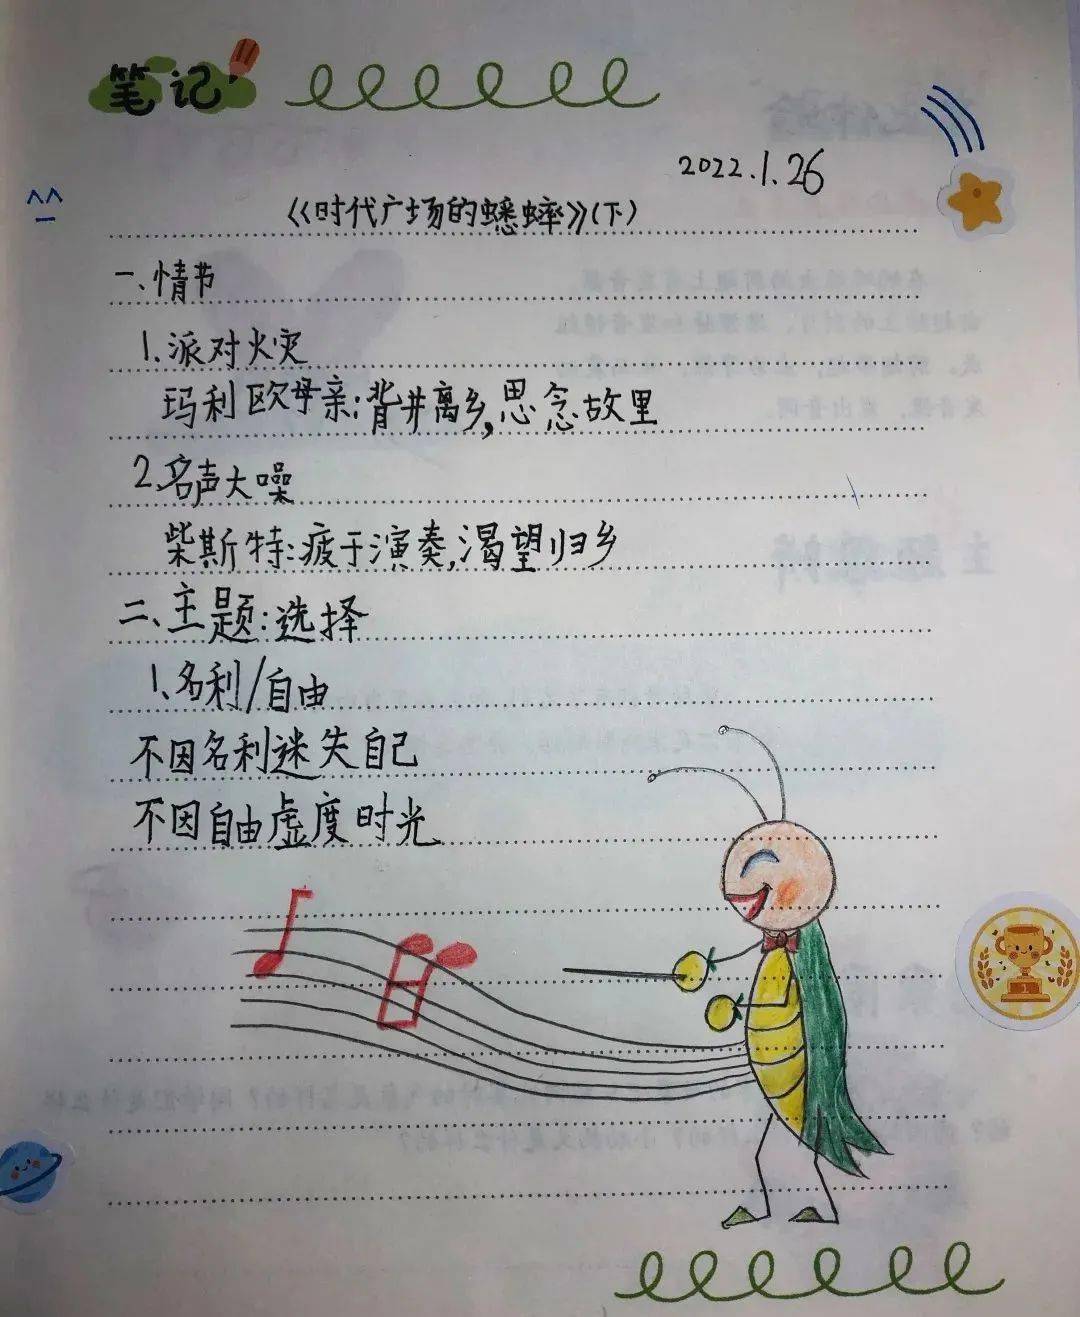 笔记
2022.1.26
《时代广场的蟋蟀》(下)
一、情节
1.派对火灾
玛利欧母亲:背井离乡,思念故里
2.名声大噪
柴斯特:疲于演奏,渴望归乡
二、主题:选择
1.名利/自由
不因名利迷失自己
不因自由虚度时光